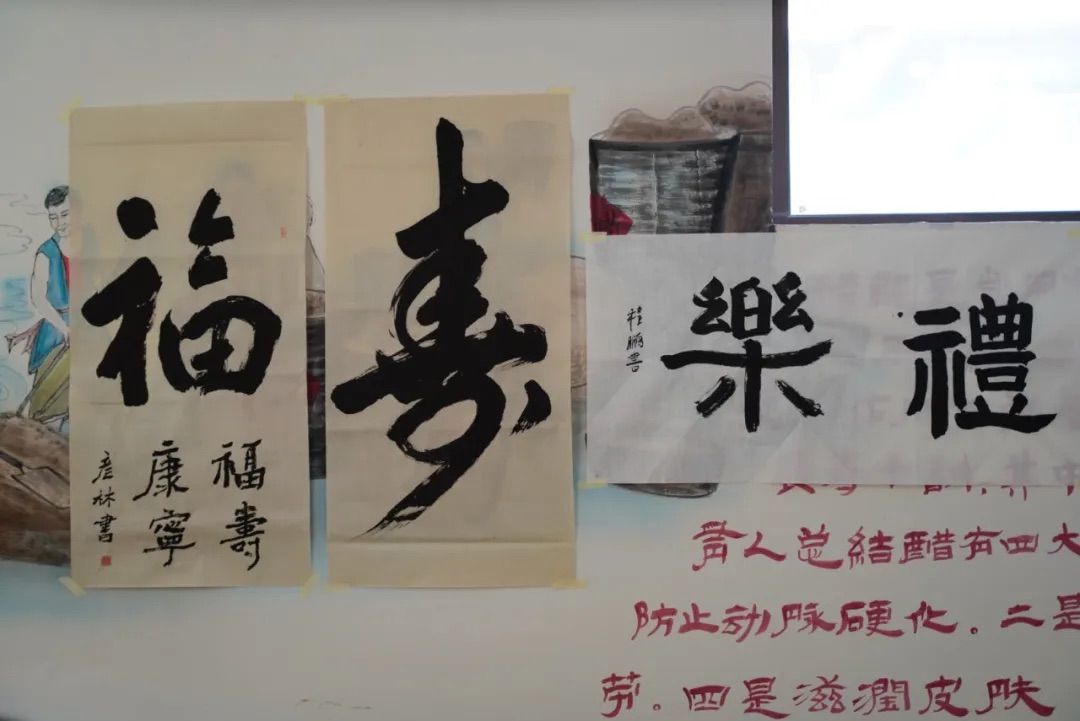 福
福壽
康寧
彦林書
寿
禮樂
書
人总結醋有四大
防止动脉硬化。二是
劳。四是滋潤皮肤